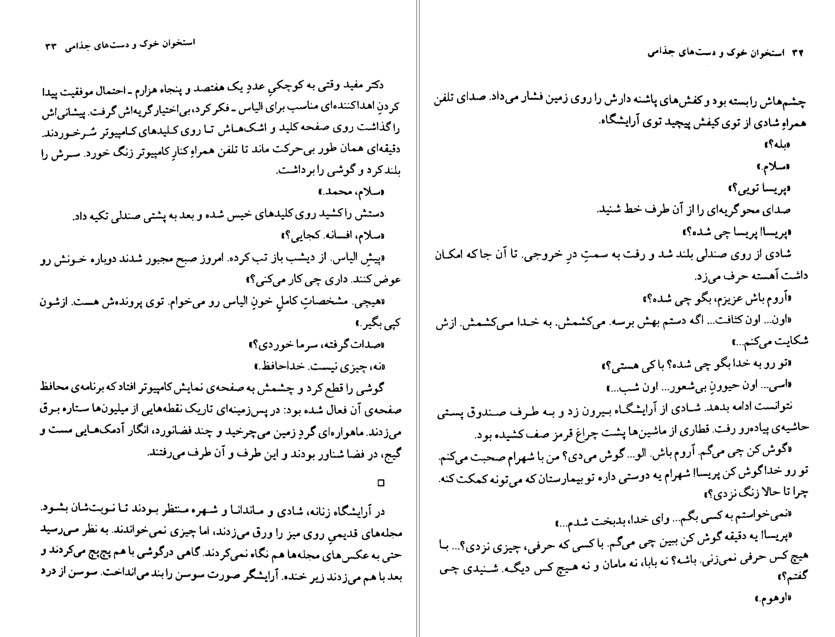 استخوان خوک و دست‌های جذامی ۳۳
دکتر مفید وقتی به کوچکیِ عددِ یک هفتصد و پنجاه هزارم ـ احتمال موفقیت پیدا
کردنِ اهداکننده‌ای مناسب برای الیاس ـ فکر کرد، بی‌اختیار گریه‌اش گرفت. پیشانی‌اش
را گذاشت روی صفحه کلید و اشک‌هاش تا روی کلیدهای کامپیوتر سُر خوردند.
دقیقه‌ای همان طور بی‌حرکت ماند تا تلفن همراهِ کنارِ کامپیوتر زنگ خورد. سرش را
بلند کرد و گوشی را برداشت.
«سلام، محمد.»
دستش را کشید روی کلیدهای خیس شده و بعد به پشتی صندلی تکیه داد.
«سلام، افسانه. کجایی؟»
«پیشِ الیاس. از دیشب باز تب کرده. امروز صبح مجبور شدند دوباره خونش رو
عوض کنند. داری چی کار می‌کنی؟»
«هیچی. مشخصاتِ کاملِ خونِ الیاس رو می‌خوام. توی پرونده‌ش هست. ازشون
کپی بگیر.»
«صدات گرفته، سرما خوردی؟»
«نه، چیزی نیست. خداحافظ.»
گوشی را قطع کرد و چشمش به صفحه‌ی نمایش کامپیوتر افتاد که برنامه‌ی محافظ
صفحه‌ی آن فعال شده بود: در پس‌زمینه‌ای تاریک نقطه‌هایی از میلیون‌ها ستاره برق
می‌زدند. ماهواره‌ای گردِ زمین می‌چرخید و چند فضانورد، انگار آدمک‌هایی مست و
گیج، در فضا شناور بودند و این طرف و آن طرف می‌رفتند.
□
در آرایشگاه زنانه، شادی و ماندانا و شهره منتظر بودند تا نوبت‌شان بشود.
مجله‌های قدیمیِ روی میز را ورق می‌زدند، اما چیزی نمی‌خواندند. به نظر می‌رسید
حتی به عکس‌های مجله‌ها هم نگاه نمی‌کردند. گاهی درگوشی با هم پچ‌پچ می‌کردند و
بعد با هم می‌زدند زیر خنده. آرایشگر صورت سوسن را بند می‌انداخت. سوسن از درد
۳۴ استخوان خوک و دست‌های جذامی
چشم‌هاش را بسته بود و کفش‌های پاشنه دارش را روی زمین فشار می‌داد. صدای تلفن
همراهِ شادی از توی کیفش پیچید توی آرایشگاه.
«بله؟»
«سلام.»
«پریسا تویی؟»
صدای محو گریه‌ای را از آن طرف خط شنید.
«پریسا! پریسا چی شده؟»
شادی از روی صندلی بلند شد و رفت به سمتِ درِ خروجی. تا آن جا که امکان
داشت آهسته حرف می‌زد.
«آروم باش عزیزم، بگو چی شده؟»
«اون... اون کثافت... اگه دستم بهش برسه. می‌کشمش. به خدا می‌کشمش. ازش
شکایت می‌کنم...»
«تو رو به خدا بگو چی شده؟ با کی هستی؟»
«اسی... اون حیوونِ بی‌شعور... اون شب...»
نتوانست ادامه بدهد. شادی از آرایشگاه بیرون زد و به طرف صندوق پستی
حاشیه‌ی پیاده‌رو رفت. قطاری از ماشین‌ها پشت چراغ قرمز صف کشیده بود.
«گوش کن چی می‌گم. آروم باش. الو... گوش می‌دی؟ من با شهرام صحبت می‌کنم.
تو رو خدا گوش کن پریسا! شهرام یه دوستی داره تو بیمارستان که می‌تونه کمکت کنه.
چرا تا حالا زنگ نزدی؟»
«نمی‌خواستم به کسی بگم... وای خدا، بدبخت شدم...»
«پریسا! یه دقیقه گوش کن ببین چی می‌گم. با کسی که حرفی، چیزی نزدی؟... با
هیچ کس حرفی نمی‌زنی. باشه؟ نه بابا، نه مامان و نه هیچ کس دیگه. شنیدی چی
گفتم؟»
«اوهوم.»